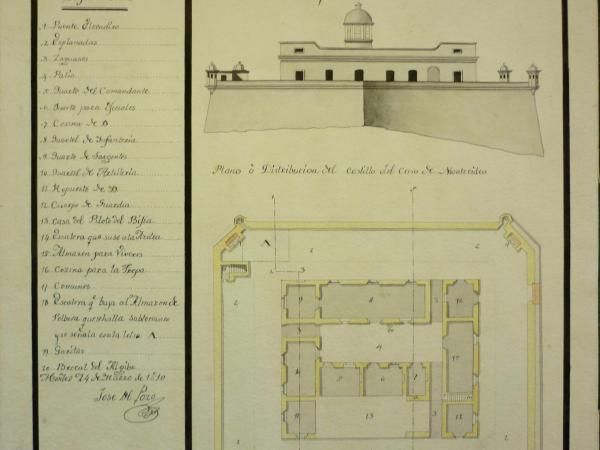 1 Puente Elevadizo
2 Esplanadas
3 Zaguanes
4 Patio
5 Quarto del Comandante
6 Quarto para Oficiales
7 Cozina de D
8 Quartel de Ynfanteria
9 Quarto de Sargentos
10 Quartel de Artilleria
11 Repuesto de D
12 Cuerpo de Guardia
13 Casa del Piloto del Bijia
14 Escalera que sube a la
15 Almazen para Viveres
16 Cozina para la Tropa
17 Comunes
18 Escalera q.e baja al Almazon de
Polbora que se halla subterraneo
y se señala con la letra A
19 Garitas
20 Brocal del Algibe
Montev.o 24 de Marzo de 1810
Jose del Pozo
Plano ò Distribucion del Castillo del Cerro de Montevideo
A
2
2
2
3
9
8
10
3
4
5
6
7
17
11
13
3
12
2
2